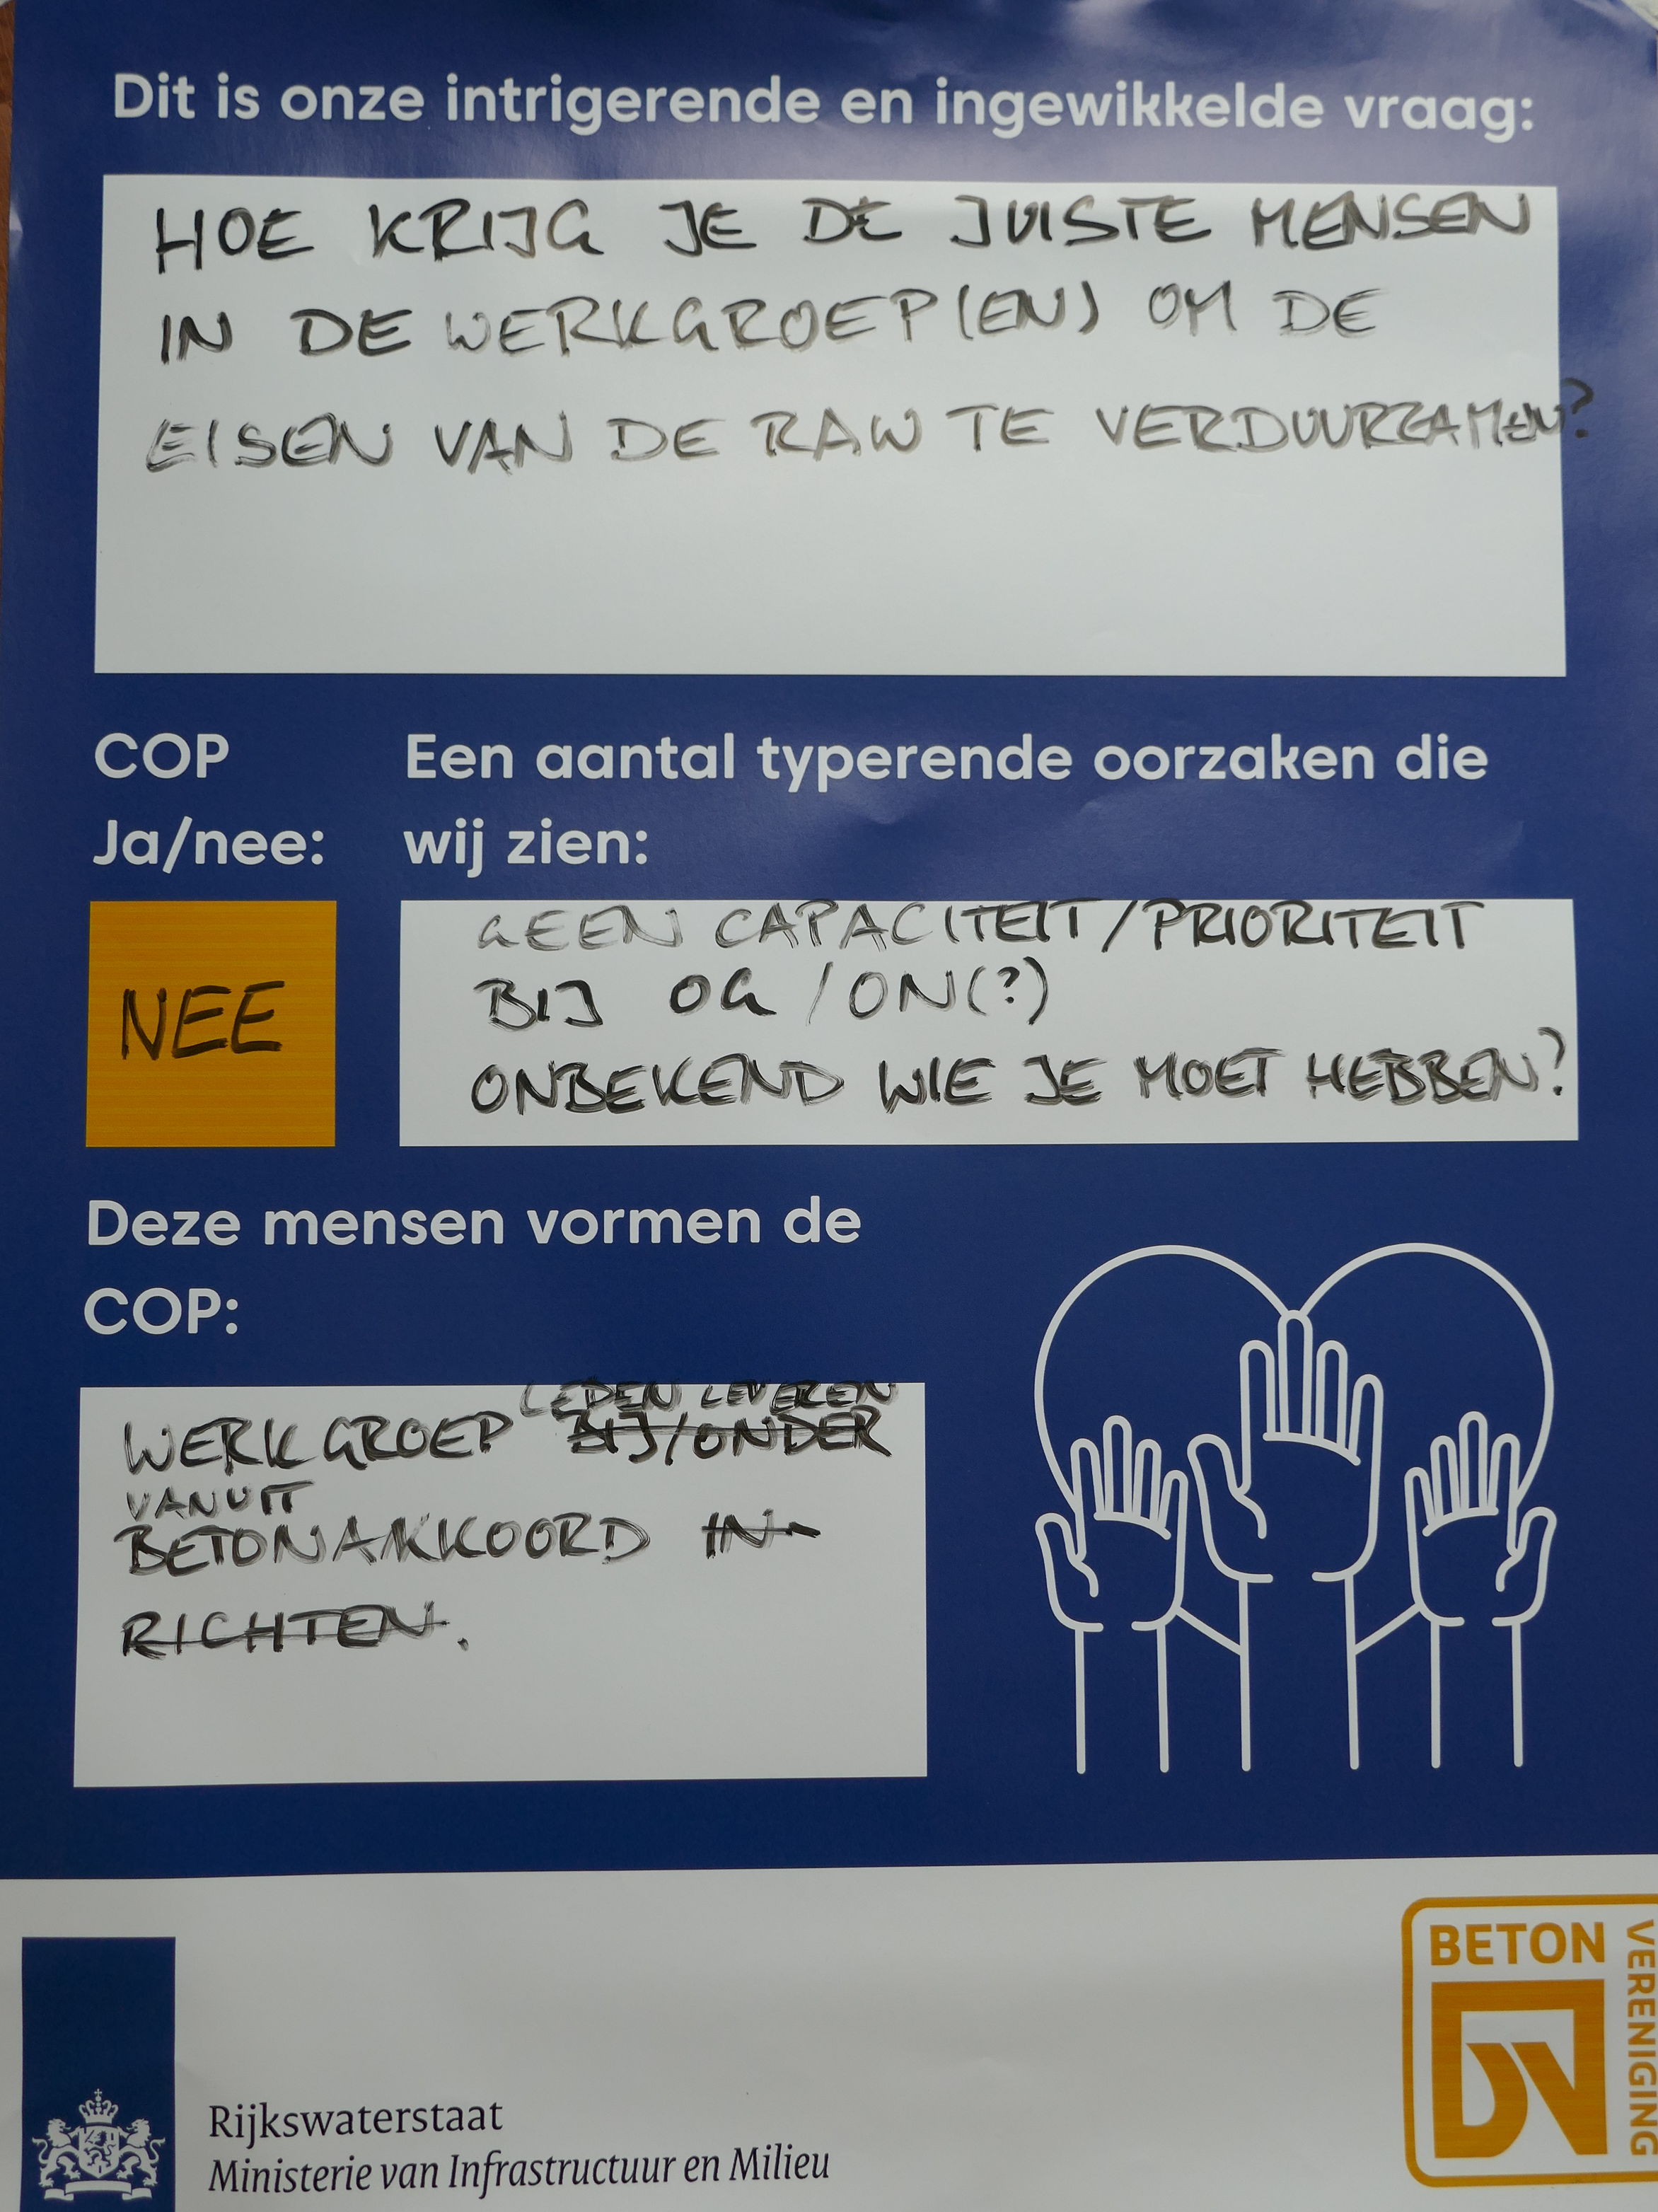 Dit is onze intrigerende en ingewikkelde vraag:
HOE KRIJG JE DE JUISTE MENSEN
IN DE WERKGROEP(EN) OM DE
EISEN VAN DE RAW TE VERDUURZAMEN?
COP
Ja/nee:
NEE
Een aantal typerende oorzaken die
wij zien:
GEEN CAPACITEIT/PRIORITEIT
BIJ OG/ON(?)
ONBEKEND WIE JE MOET HEBBEN?
Deze mensen vormen de
COP:
LEDEN LEVEREN
WERKGROEP BIJ/ONDER
VANUIT
BETONAKKOORD IN-
RICHTEN.
Rijkswaterstaat
Ministerie van Infrastructuur en Milieu
BETON
VERENIGING